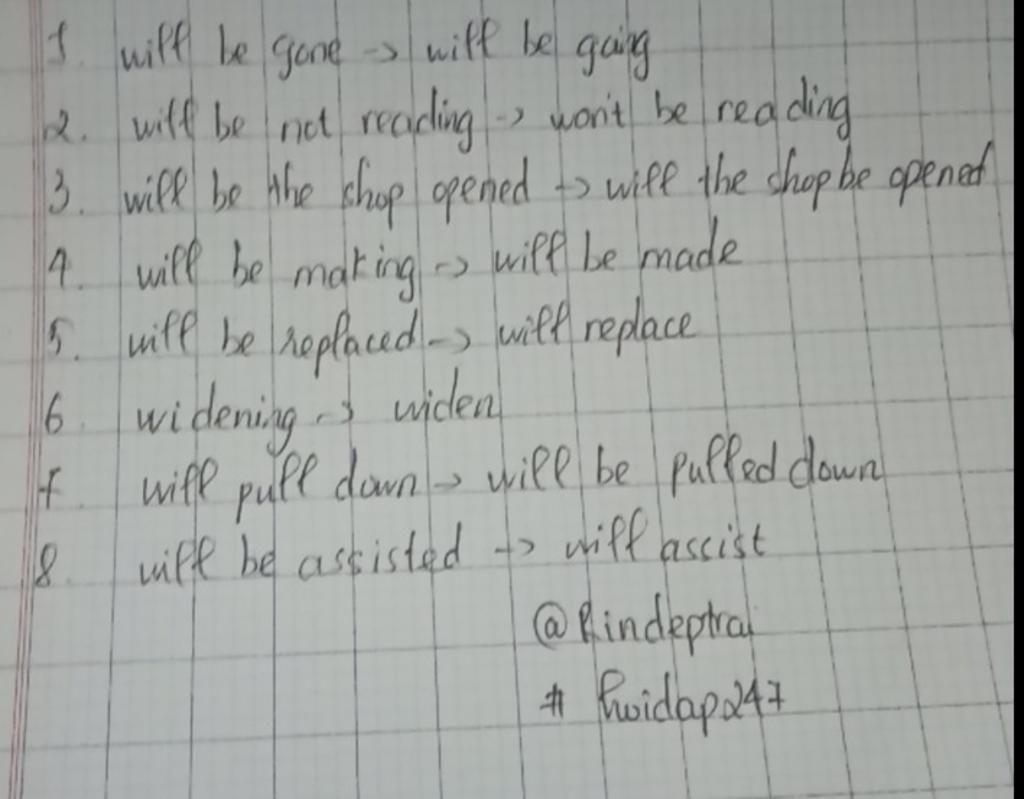 1. will be gone -> will be going
2. will be not reading -> won't be reading
3. will be the shop opened -> will the shop be opened
4. will be making -> will be made
5. will be replaced -> will replace
6. widening -> widen
7. will pull down -> will be pulled down
8. will be assisted -> will assist
@Rindeptrai
# hoidap247